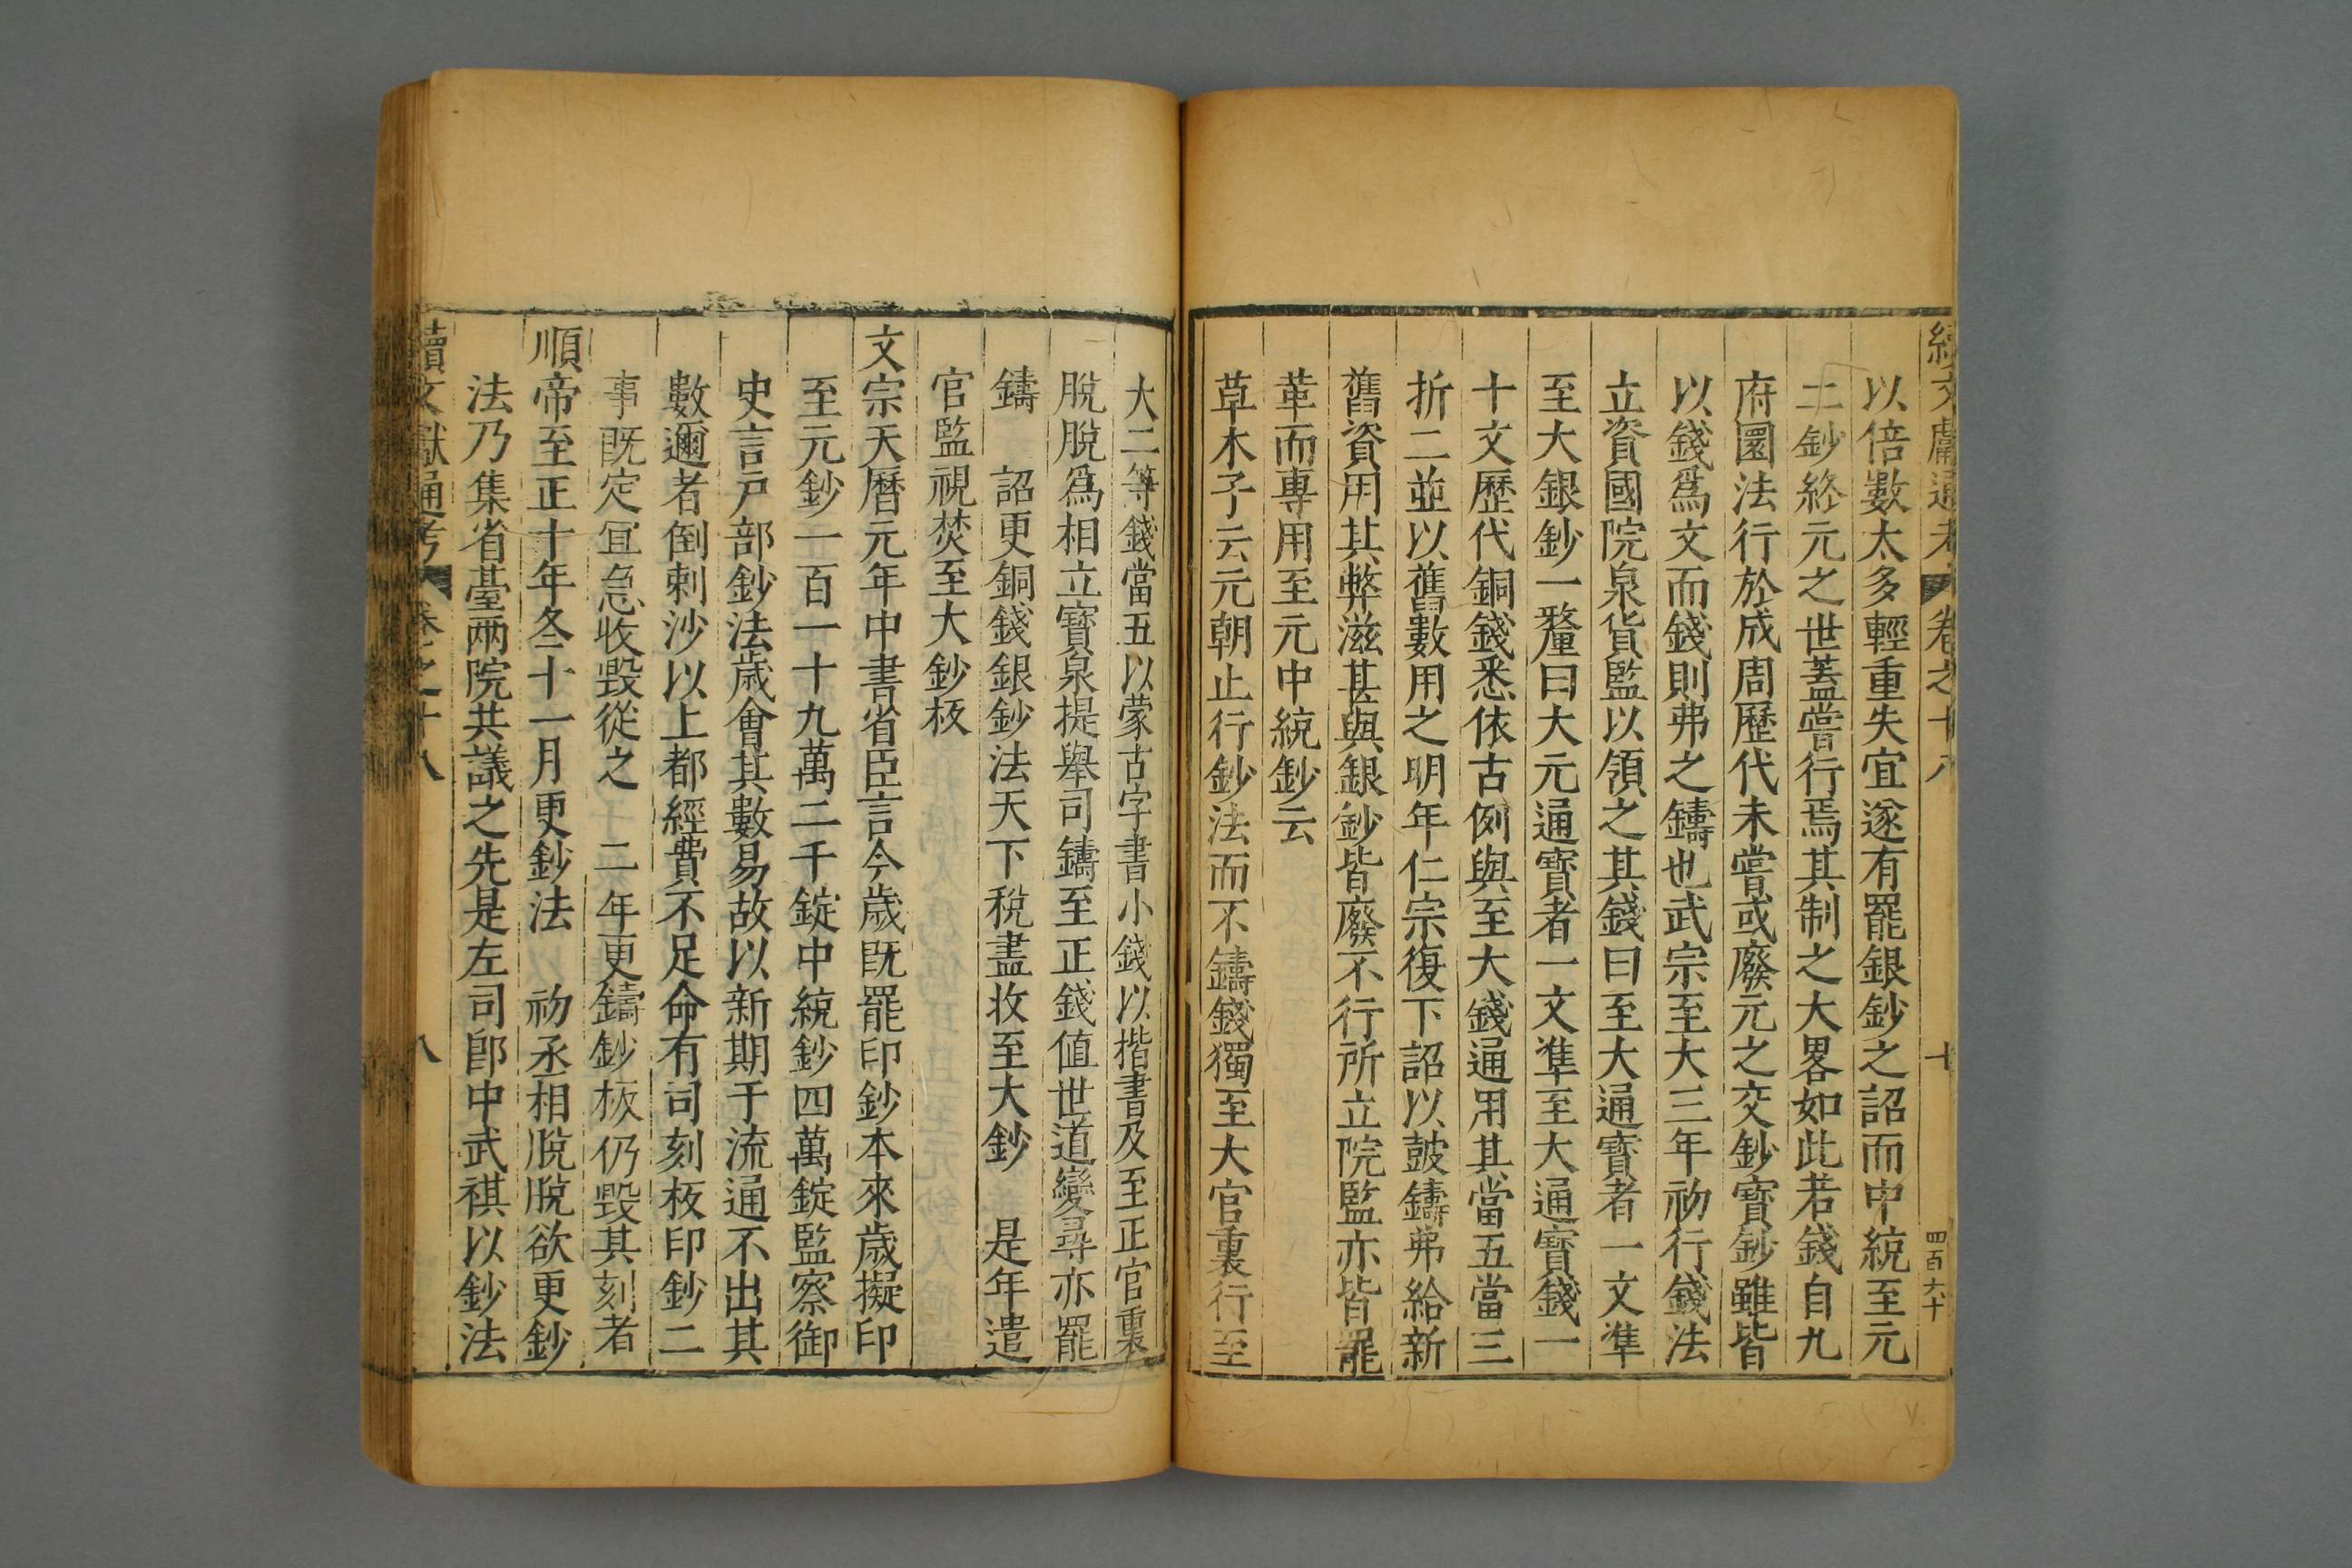 續文獻通考 卷之十八 七 四百六十
以倍數太多輕重失宜遂有罷銀鈔之詔而中統至元
二鈔終元之世蓋嘗行焉其制之大畧如此若錢自九
府圜法行於成周歷代未嘗或廢元之交鈔寶鈔雖皆
以錢爲文而錢則弗之鑄也武宗至大三年初行錢法
立資國院泉貨監以領之其錢曰至大通寶者一文凖
至大銀鈔一釐曰大元通寶者一文凖至大通寶錢一
十文歷代銅錢悉依古例與至大錢通用其當五當三
折二並以舊數用之明年仁宗復下詔以鼓鑄弗給新
舊資用其弊滋甚與銀鈔皆廢不行所立院監亦皆罷
革而專用至元中統鈔云
草木子云元朝止行鈔法而不鑄錢獨至大官裏行至
大二等錢當五以蒙古字書小錢以楷書及至正官裏
脫脫爲相立寶泉提舉司鑄至正錢值世道變尋亦罷
鑄 詔更銅錢銀鈔法天下稅盡收至大鈔 是年遣
官監視焚至大鈔板
文宗天曆元年中書省臣言今歲既罷印鈔本來歲擬印
至元鈔一百一十九萬二千錠中統鈔四萬錠監察御
史言戸部鈔法歲會其數易故以新期于流通不出其
數邇者倒剌沙以上都經費不足命有司刻板印鈔二
事既定宜急收毀從之 二年更鑄鈔板仍毀其刻者
順帝至正十年冬十一月更鈔法 初丞相脫脫欲更鈔
法乃集省臺兩院共議之先是左司郎中武祺以鈔法
續文獻通考 卷之十八 八